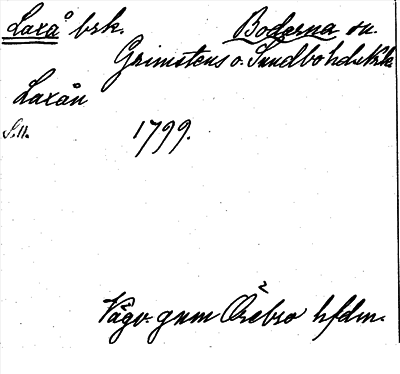 Laxå brk. Boderna sn.
Grimstens o. Sundbo hds Nrk
Laxån
S. 11. 1799.
Vägv. gnm Örebro hfdm.